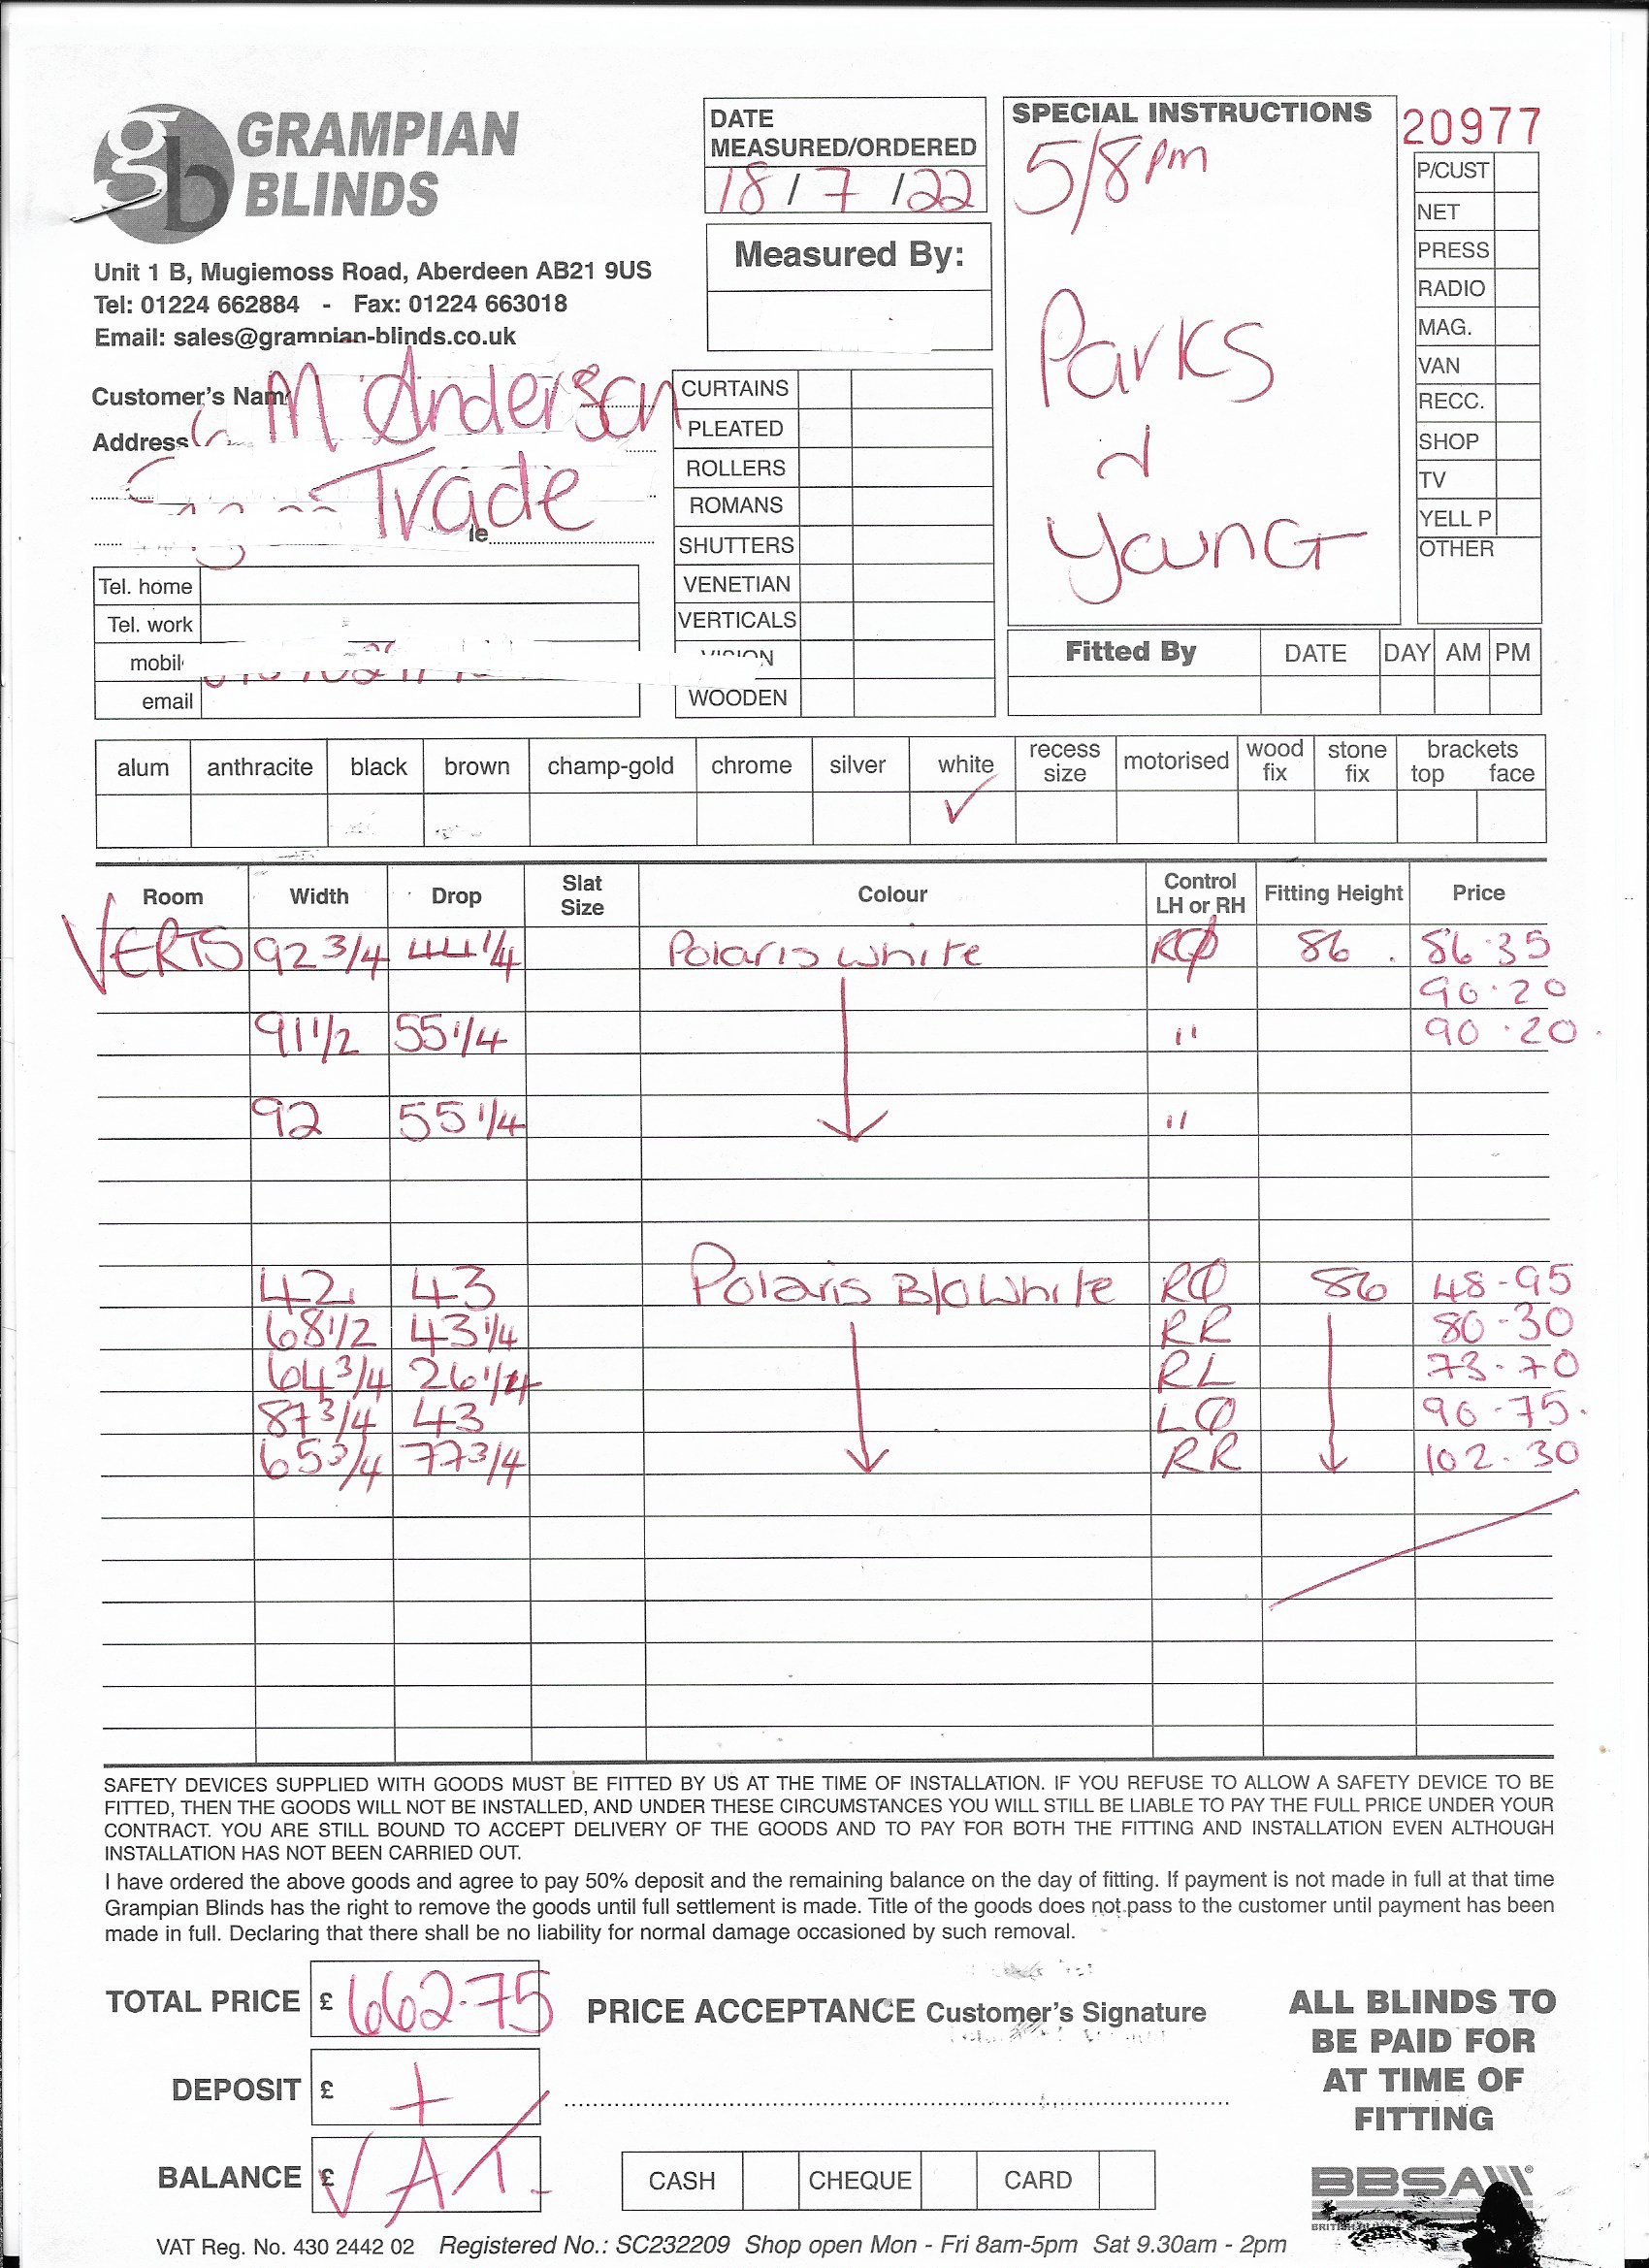 gb GRAMPIAN
BLINDS
Unit 1 B, Mugiemoss Road, Aberdeen AB21 9US
Tel: 01224 662884 - Fax: 01224 663018
Email: sales@grampian-blinds.co.uk
DATE
MEASURED/ORDERED
18 / 7 / 22
Measured By:
SPECIAL INSTRUCTIONS
5/8pm
Parks
&
Young
20977
P/CUST
NET
PRESS
RADIO
MAG.
VAN
RECC.
SHOP
TV
YELL P
OTHER
Customer's Name M Anderson
Address
Trade
Tel. home
Tel. work
mobil
email
CURTAINS
PLEATED
ROLLERS
ROMANS
SHUTTERS
VENETIAN
VERTICALS
VISION
WOODEN
Fitted By DATE DAY AM PM
alum anthracite black brown champ-gold chrome silver white recess size motorised wood fix stone fix brackets top face
✓
Room Width Drop Slat Size Colour Control LH or RH Fitting Height Price
VERTS 92 3/4 44 1/4 Polaris White RØ 86 86.35
90.20
91 1/2 55 1/4 " 90.20
92 55 1/4 "
42 43 Polaris B/O White RØ 86 48-95
68 1/2 43 1/4 RR 80-30
64 3/4 26 1/4 RL 73-70
87 3/4 43 LØ 90-75
65 3/4 77 3/4 RR 102-30
SAFETY DEVICES SUPPLIED WITH GOODS MUST BE FITTED BY US AT THE TIME OF INSTALLATION. IF YOU REFUSE TO ALLOW A SAFETY DEVICE TO BE
FITTED, THEN THE GOODS WILL NOT BE INSTALLED, AND UNDER THESE CIRCUMSTANCES YOU WILL STILL BE LIABLE TO PAY THE FULL PRICE UNDER YOUR
CONTRACT. YOU ARE STILL BOUND TO ACCEPT DELIVERY OF THE GOODS AND TO PAY FOR BOTH THE FITTING AND INSTALLATION EVEN ALTHOUGH
INSTALLATION HAS NOT BEEN CARRIED OUT.
I have ordered the above goods and agree to pay 50% deposit and the remaining balance on the day of fitting. If payment is not made in full at that time
Grampian Blinds has the right to remove the goods until full settlement is made. Title of the goods does not pass to the customer until payment has been
made in full. Declaring that there shall be no liability for normal damage occasioned by such removal.
TOTAL PRICE £ 662.75
PRICE ACCEPTANCE Customer's Signature
DEPOSIT £ +
BALANCE £ VAT.
CASH CHEQUE CARD
ALL BLINDS TO
BE PAID FOR
AT TIME OF
FITTING
BBSA
VAT Reg. No. 430 2442 02 Registered No.: SC232209 Shop open Mon - Fri 8am-5pm Sat 9.30am - 2pm